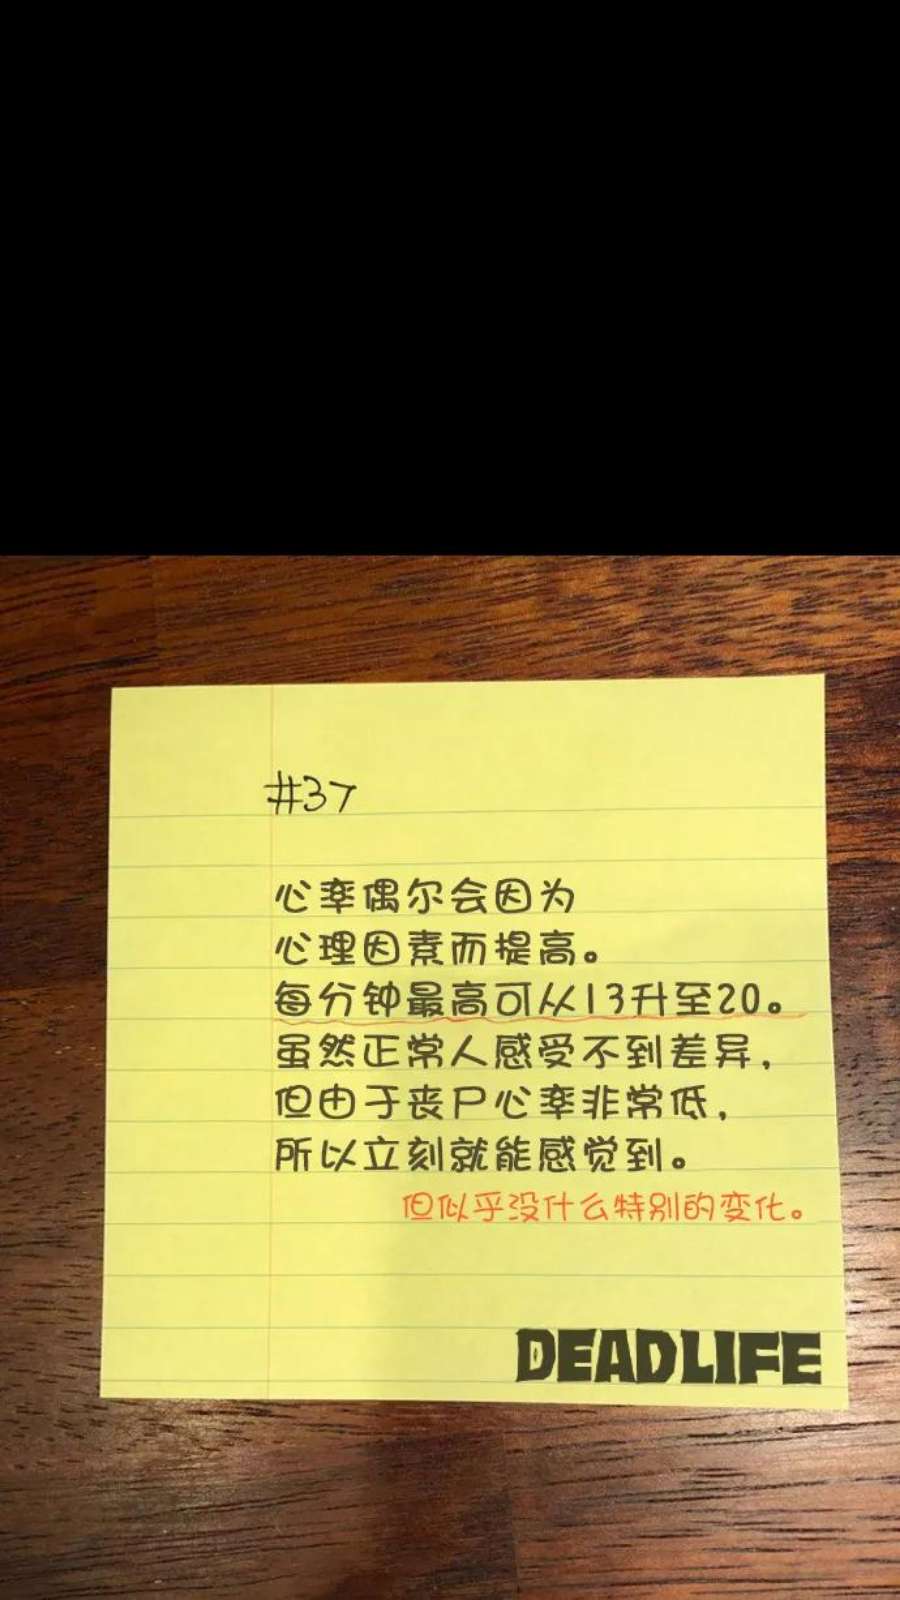 #37
心率偶尔会因为
心理因素而提高。
每分钟最高可从13升至20。
虽然正常人感受不到差异，
但由于丧尸心率非常低，
所以立刻就能感觉到。
但似乎没什么特别的变化。
DEADLIFE